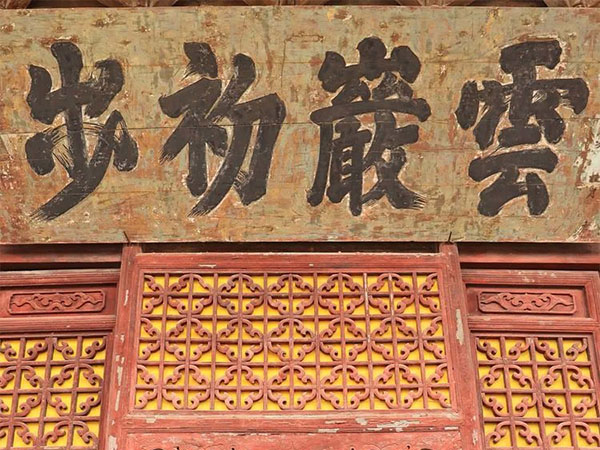 雲巖初步